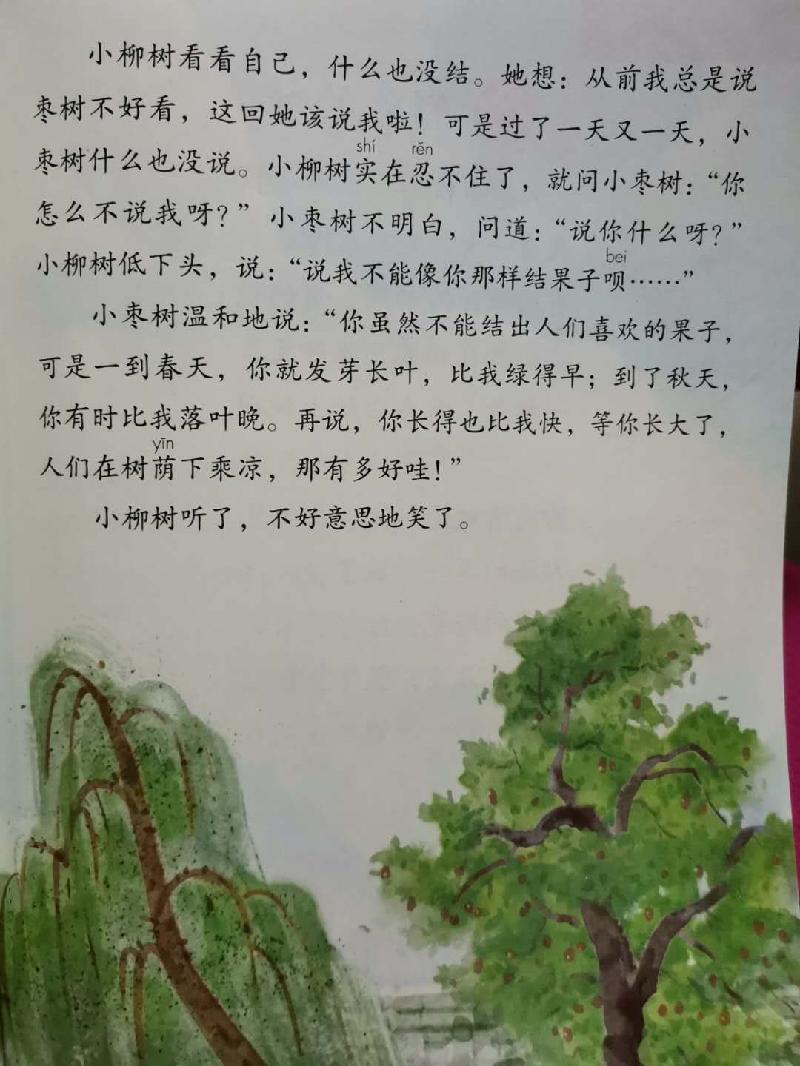 小柳树看看自己，什么也没结。她想：从前我总是说
枣树不好看，这回她该说我啦！可是过了一天又一天，小
shí rěn
枣树什么也没说。小柳树实在忍不住了，就问小枣树：“你
怎么不说我呀？”小枣树不明白，问道：“说你什么呀？”
bei
小柳树低下头，说：“说我不能像你那样结果子呗……”
小枣树温和地说：“你虽然不能结出人们喜欢的果子，
可是一到春天，你就发芽长叶，比我绿得早；到了秋天，
你有时比我落叶晚。再说，你长得也比我快，等你长大了，
yīn
人们在树荫下乘凉，那有多好哇！”
小柳树听了，不好意思地笑了。